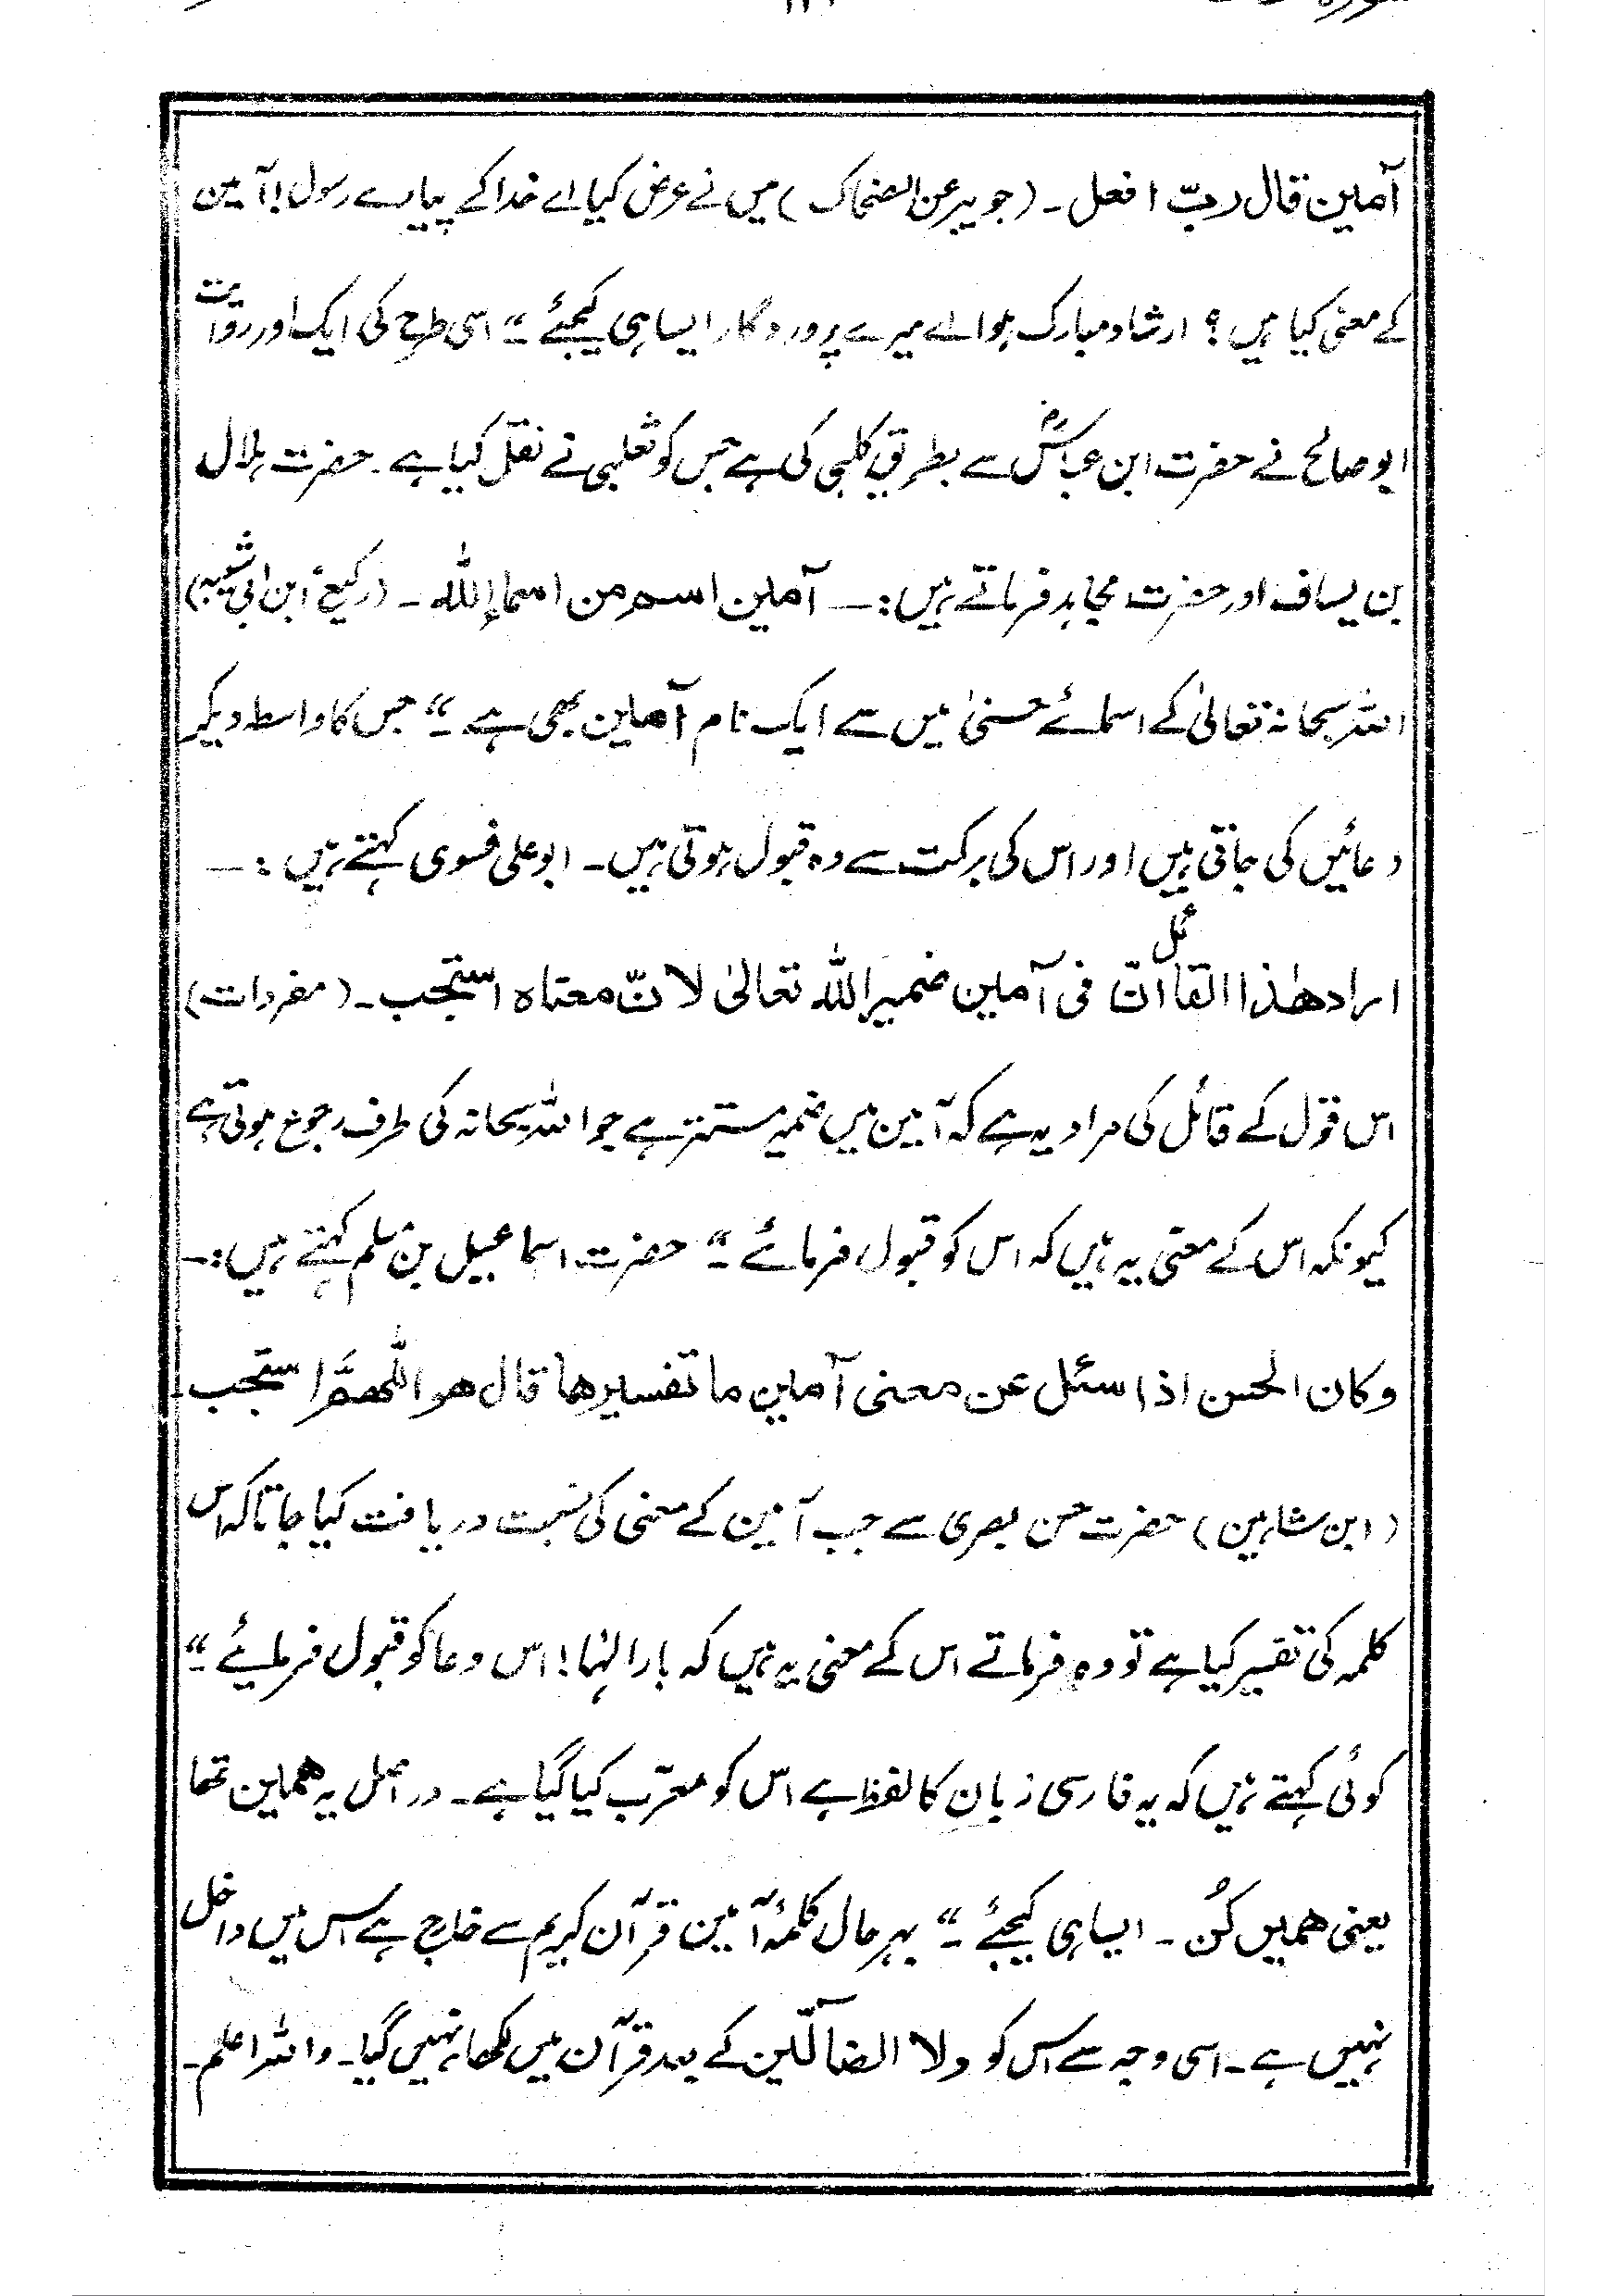 آمین قال ربّ افعل ۔ (جویبر عن الضحاک) میں نے عرض کیا اے خدا کے پیارے رسول! آمین
کے معنی کیا ہیں؟ ارشاد مبارک ہوا اے میرے پروردگار ایسا ہی کیجئے ۔“ اسی طرح کی ایک اور روایت
ابو صالح نے حضرت ابن عباسؓ سے بطریق کلبی کی ہے جس کو ثعلبی نے نقل کیا ہے ۔ حضرت ہلال
بن یساف اور حضرت مجاہد فرماتے ہیں :— آمین اسم من اسماء اللہ ۔ (وکیع، ابن ابی شیبہ)
اللہ سبحانہ تعالیٰ کے اسمائے حسنیٰ میں سے ایک نام آمین بھی ہے ۔“ جس کا واسطہ دیکر
دعائیں کی جاتی ہیں اور اس کی برکت سے وہ قبول ہوتی ہیں ۔ ابو علی فسوی کہتے ہیں :—
اراد ھٰذا القائل انّ فی آمین ضمیر اللہ تعالیٰ لانّ معناہ استجب ۔ (مفردات)
اس قول کے قائل کی مراد یہ ہے کہ آمین میں ضمیر مستتر ہے جو اللہ سبحانہ کی طرف رجوع ہوتی ہے
کیونکہ اس کے معنی یہ ہیں کہ اس کو قبول فرمائے ۔“ حضرت اسماعیل بن مسلم کہتے ہیں :—
وکان الحسن اذا سئل عن معنی آمین ما تفسیرھا قال ھو اللّٰھمَّ استجب ۔
(ابن شاہین) حضرت حسن بصری سے جب آمین کے معنی کی نسبت دریافت کیا جاتا کہ اس
کلمہ کی تفسیر کیا ہے تو وہ فرماتے اس کے معنی یہ ہیں کہ بارالٰہا! اس دعا کو قبول فرمائیے ۔“
کوئی کہتے ہیں کہ یہ فارسی زبان کا لفظ ہے اس کو معرّب کیا گیا ہے ۔ در اصل یہ ھمین تھا
یعنی ھمیں کُن ۔ ایسا ہی کیجئے ۔“ بہر حال کلمۂ آمین قرآن کریم سے خارج ہے اس میں داخل
نہیں ہے ۔ اسی وجہ سے اس کو ولا الضآلّین کے بعد قرآن میں لکھا نہیں گیا ۔ واللہ اعلم ۔